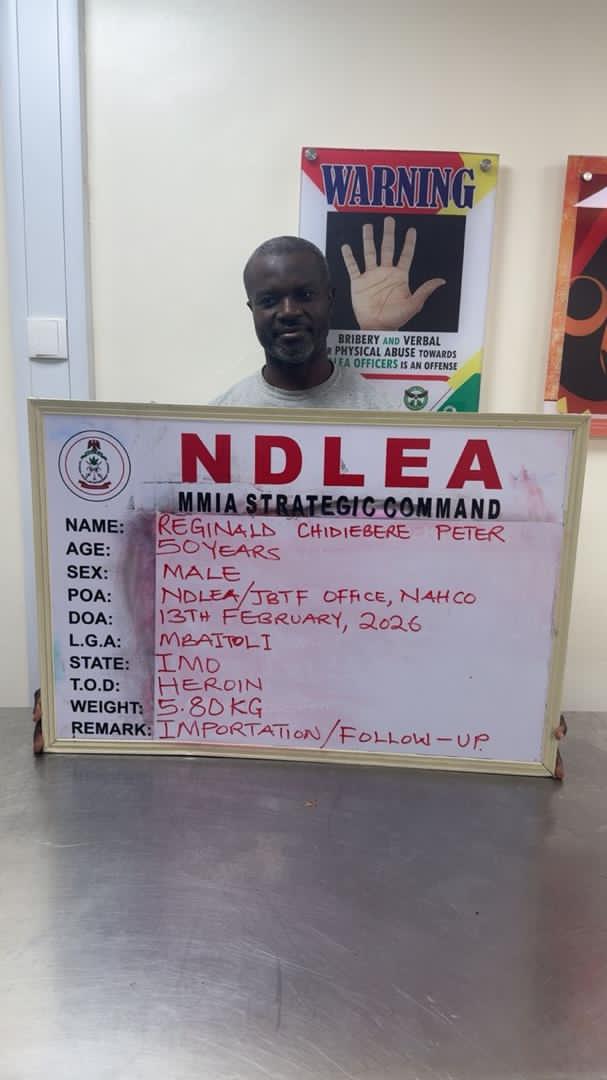 WARNING
BRIBERY AND VERBAL
PHYSICAL ABUSE TOWARDS
OFFICERS IS AN OFFENSE
NDLEA
MMIA STRATEGIC COMMAND
NAME: REGINALD CHIDIEBERE PETER
AGE: 50YEARS
SEX: MALE
POA: NDLEA/JBTF OFFICE, NAHCO
DOA: 13TH FEBRUARY, 2026
L.G.A: MBAITOLI
STATE: IMO
T.O.D: HEROIN
WEIGHT: 5.80KG
REMARK: IMPORTATION/FOLLOW-UP.